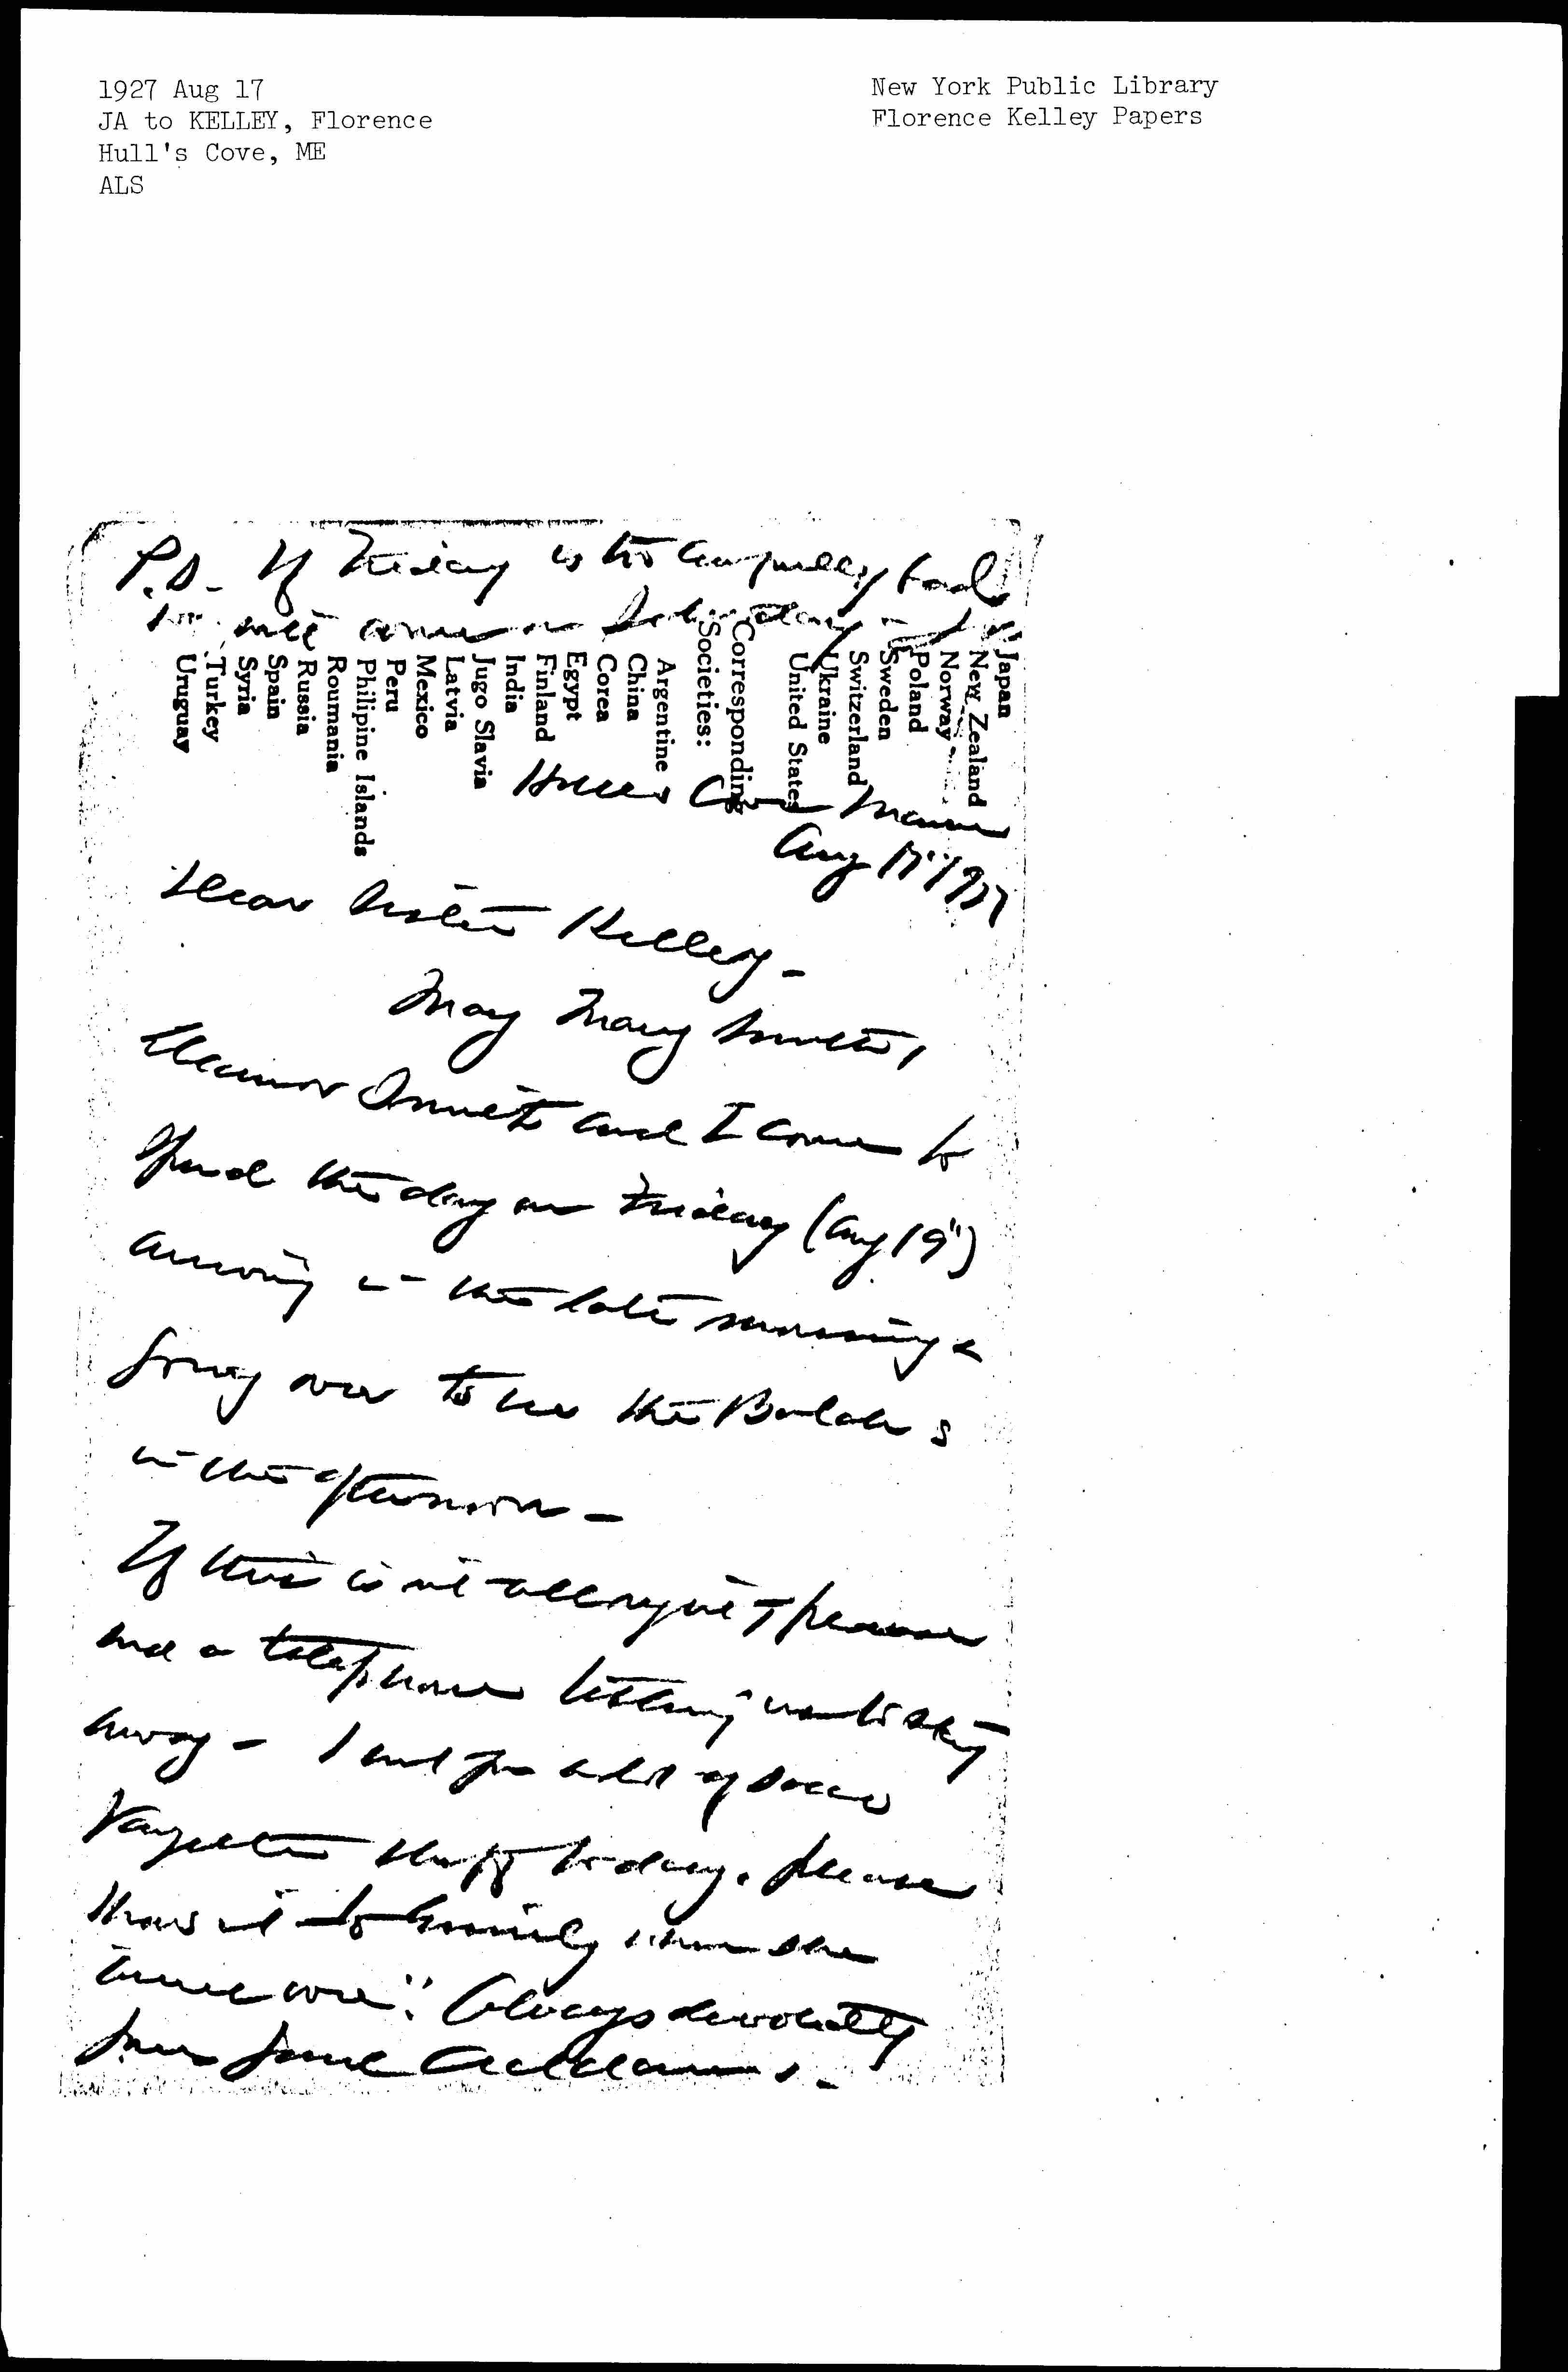 1927 Aug 17
JA to KELLEY, Florence
Hull's Cove, ME
ALS
New York Public Library
Florence Kelley Papers
P.S. If Friday is too awfully bad
we will come on Saturday
Japan
New Zealand
Norway
Poland
Sweden
Switzerland
Ukraine
United States
Corresponding
Societies:
Argentine
China
Corea
Egypt
Finland
India
Jugo Slavia
Latvia
Mexico
Peru
Philipine Islands
Roumania
Russia
Spain
Syria
Turkey
Uruguay
Hulls Cove Maine
Aug 17" 1927
Dear Sister Kelley -
May Mary Smith,
Eleanor Smith and I come to
spend the day on Friday (Aug 19")
arriving in the late morning &
going over to see the Balchs
in the afternoon -
If this is not all right please
send a telephone telling us to stay
away - I sent you a lot of Sacco
Vanzetti stuff today. Please
show it to Emily when she
comes over. Always devotedly
yours Jane Addams. -